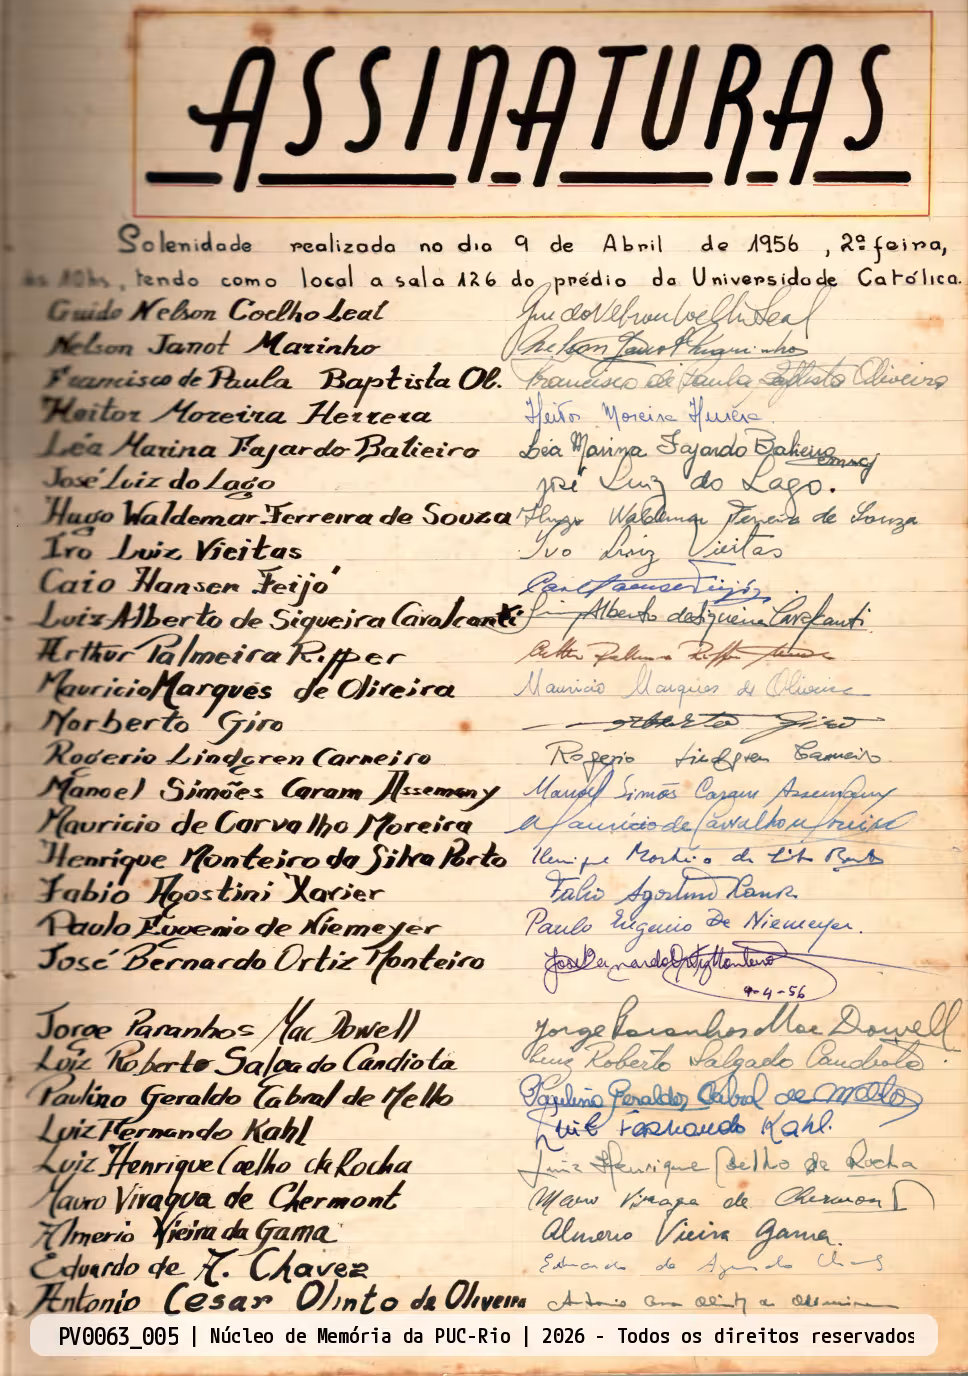 ASSINATURAS
Solenidade realizada no dia 9 de Abril de 1956, 2ª feira,
às 10hs, tendo como local a sala 126 do prédio da Universidade Católica.
Guido Nelson Coelho Leal Guido Nelson Coelho Leal
Nelson Janot Marinho Nelson Janot Marinho
Francisco de Paula Baptista Ol. Francisco de Paula Baptista Oliveira
Heitor Moreira Herrera Heitor Moreira Herrera
Léa Marina Fajardo Balieiro Léa Marina Fajardo Balieiro
José Luiz do Lago José Luiz do Lago.
Hugo Waldemar Ferreira de Souza Hugo Waldemar Ferreira de Souza
Ivo Luiz Vieitas Ivo Luiz Vieitas
Caio Hansen Feijó
Luiz Alberto de Siqueira Cavalcanti Alberto de Siqueira Cavalcanti
Arthur Palmeira Ripper Arthur Palmeira Ripper
Mauricio Marques de Oliveira Mauricio Marques de Oliveira
Norberto Giro Norberto Giro
Rogerio Lindgren Carneiro Rogerio Lindgren Carneiro
Manoel Simões Caram Assemany Manoel Simões Caram Assemany
Mauricio de Carvalho Moreira Mauricio de Carvalho Moreira
Henrique Monteiro da Silva Porto Henrique Monteiro da Silva Porto
Fabio Agostini Xavier Fabio Agostini Xavier
Paulo Eugenio de Niemeyer Paulo Eugenio De Niemeyer.
José Bernardo Ortiz Monteiro José Bernardo Ortiz Monteiro
9-4-56
Jorge Paranhos Mac Dowell Jorge Paranhos Mac Dowell
Luiz Roberto Salgado Candiota Luiz Roberto Salgado Candiota.
Paulino Geraldo Cabral de Mello Paulino Geraldo Cabral de Mello
Luiz Fernando Kahl Luiz Fernando Kahl.
Luiz Henrique Coelho da Rocha Luiz Henrique Coelho da Rocha
Mauro Vivaqua de Chermont Mauro Vivaqua de Chermont
Almerio Vieira da Gama Almerio Vieira Gama.
Eduardo de A. Chavez Eduardo de
Antonio Cesar Olinto de Oliveira Antonio Cesar Olinto de Oliveira
PV0063_005 | Núcleo de Memória da PUC-Rio | 2026 - Todos os direitos reservados